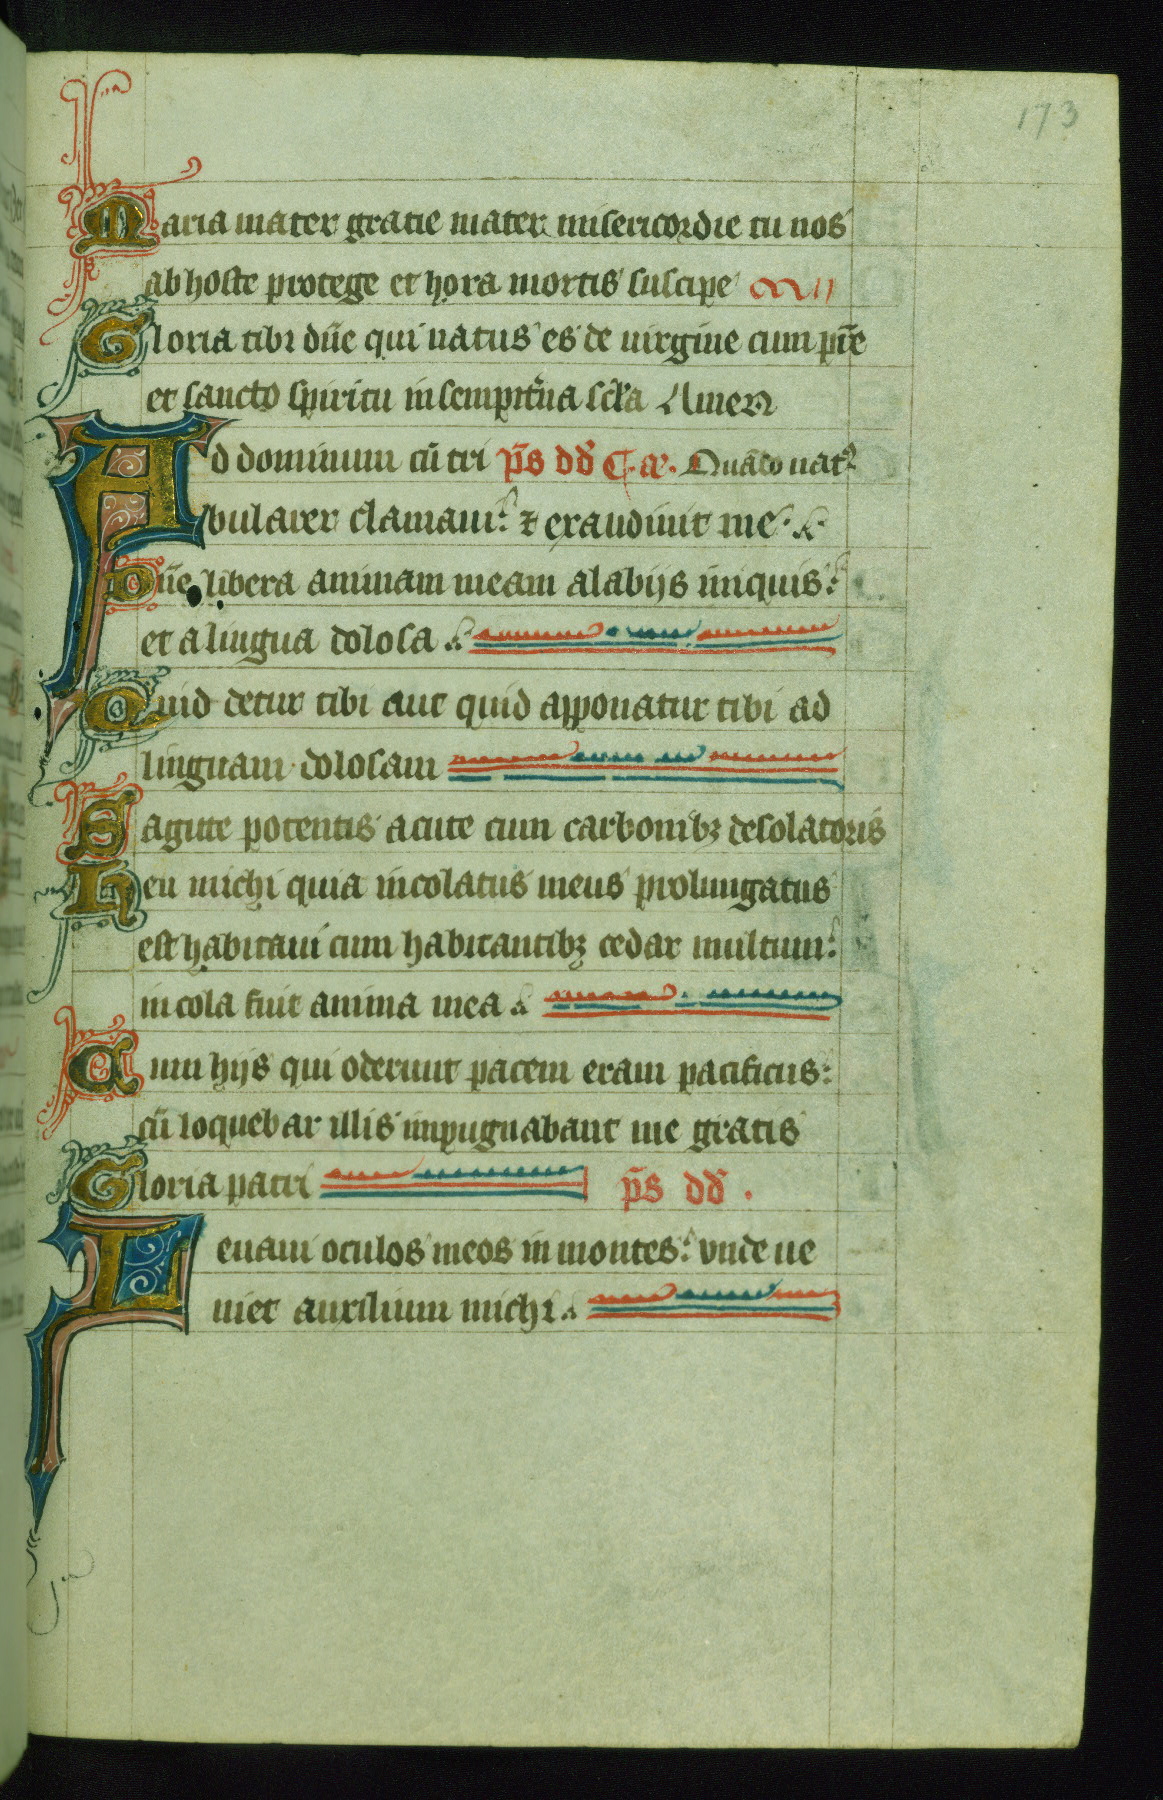 173
Maria mater gratie mater misericordie tu nos
ab hoste protege et hora mortis suscipe
Gloria tibi dñe qui natus es de uirgine cum pr̄e
et sancto spiritu in sempit̾na sc̄la Amen
Ad dominum cū tri p̄s dd̄ ꝯ. a. Quādo nat᷒
bularer clamaui: ⁊ exaudiuit me.
Dn̄e libera animam meam a labijs iniquis:
et a lingua dolosa
Quid detur tibi aut quid apponatur tibi ad
linguam dolosam
Sagitte potentis acute cum carbonibꝫ desolatoris
Heu michi quia incolatus meus prolungatus
est habitaui cum habitantibꝫ cedar multum:
incola fuit anima mea
Cum hijs qui oderunt pacem eram pacificus:
cū loquebar illis impugnabant me gratis
Gloria patri p̄s dd̄.
Leuaui oculos meos in montes: vnde ue
niet auxilium michi.